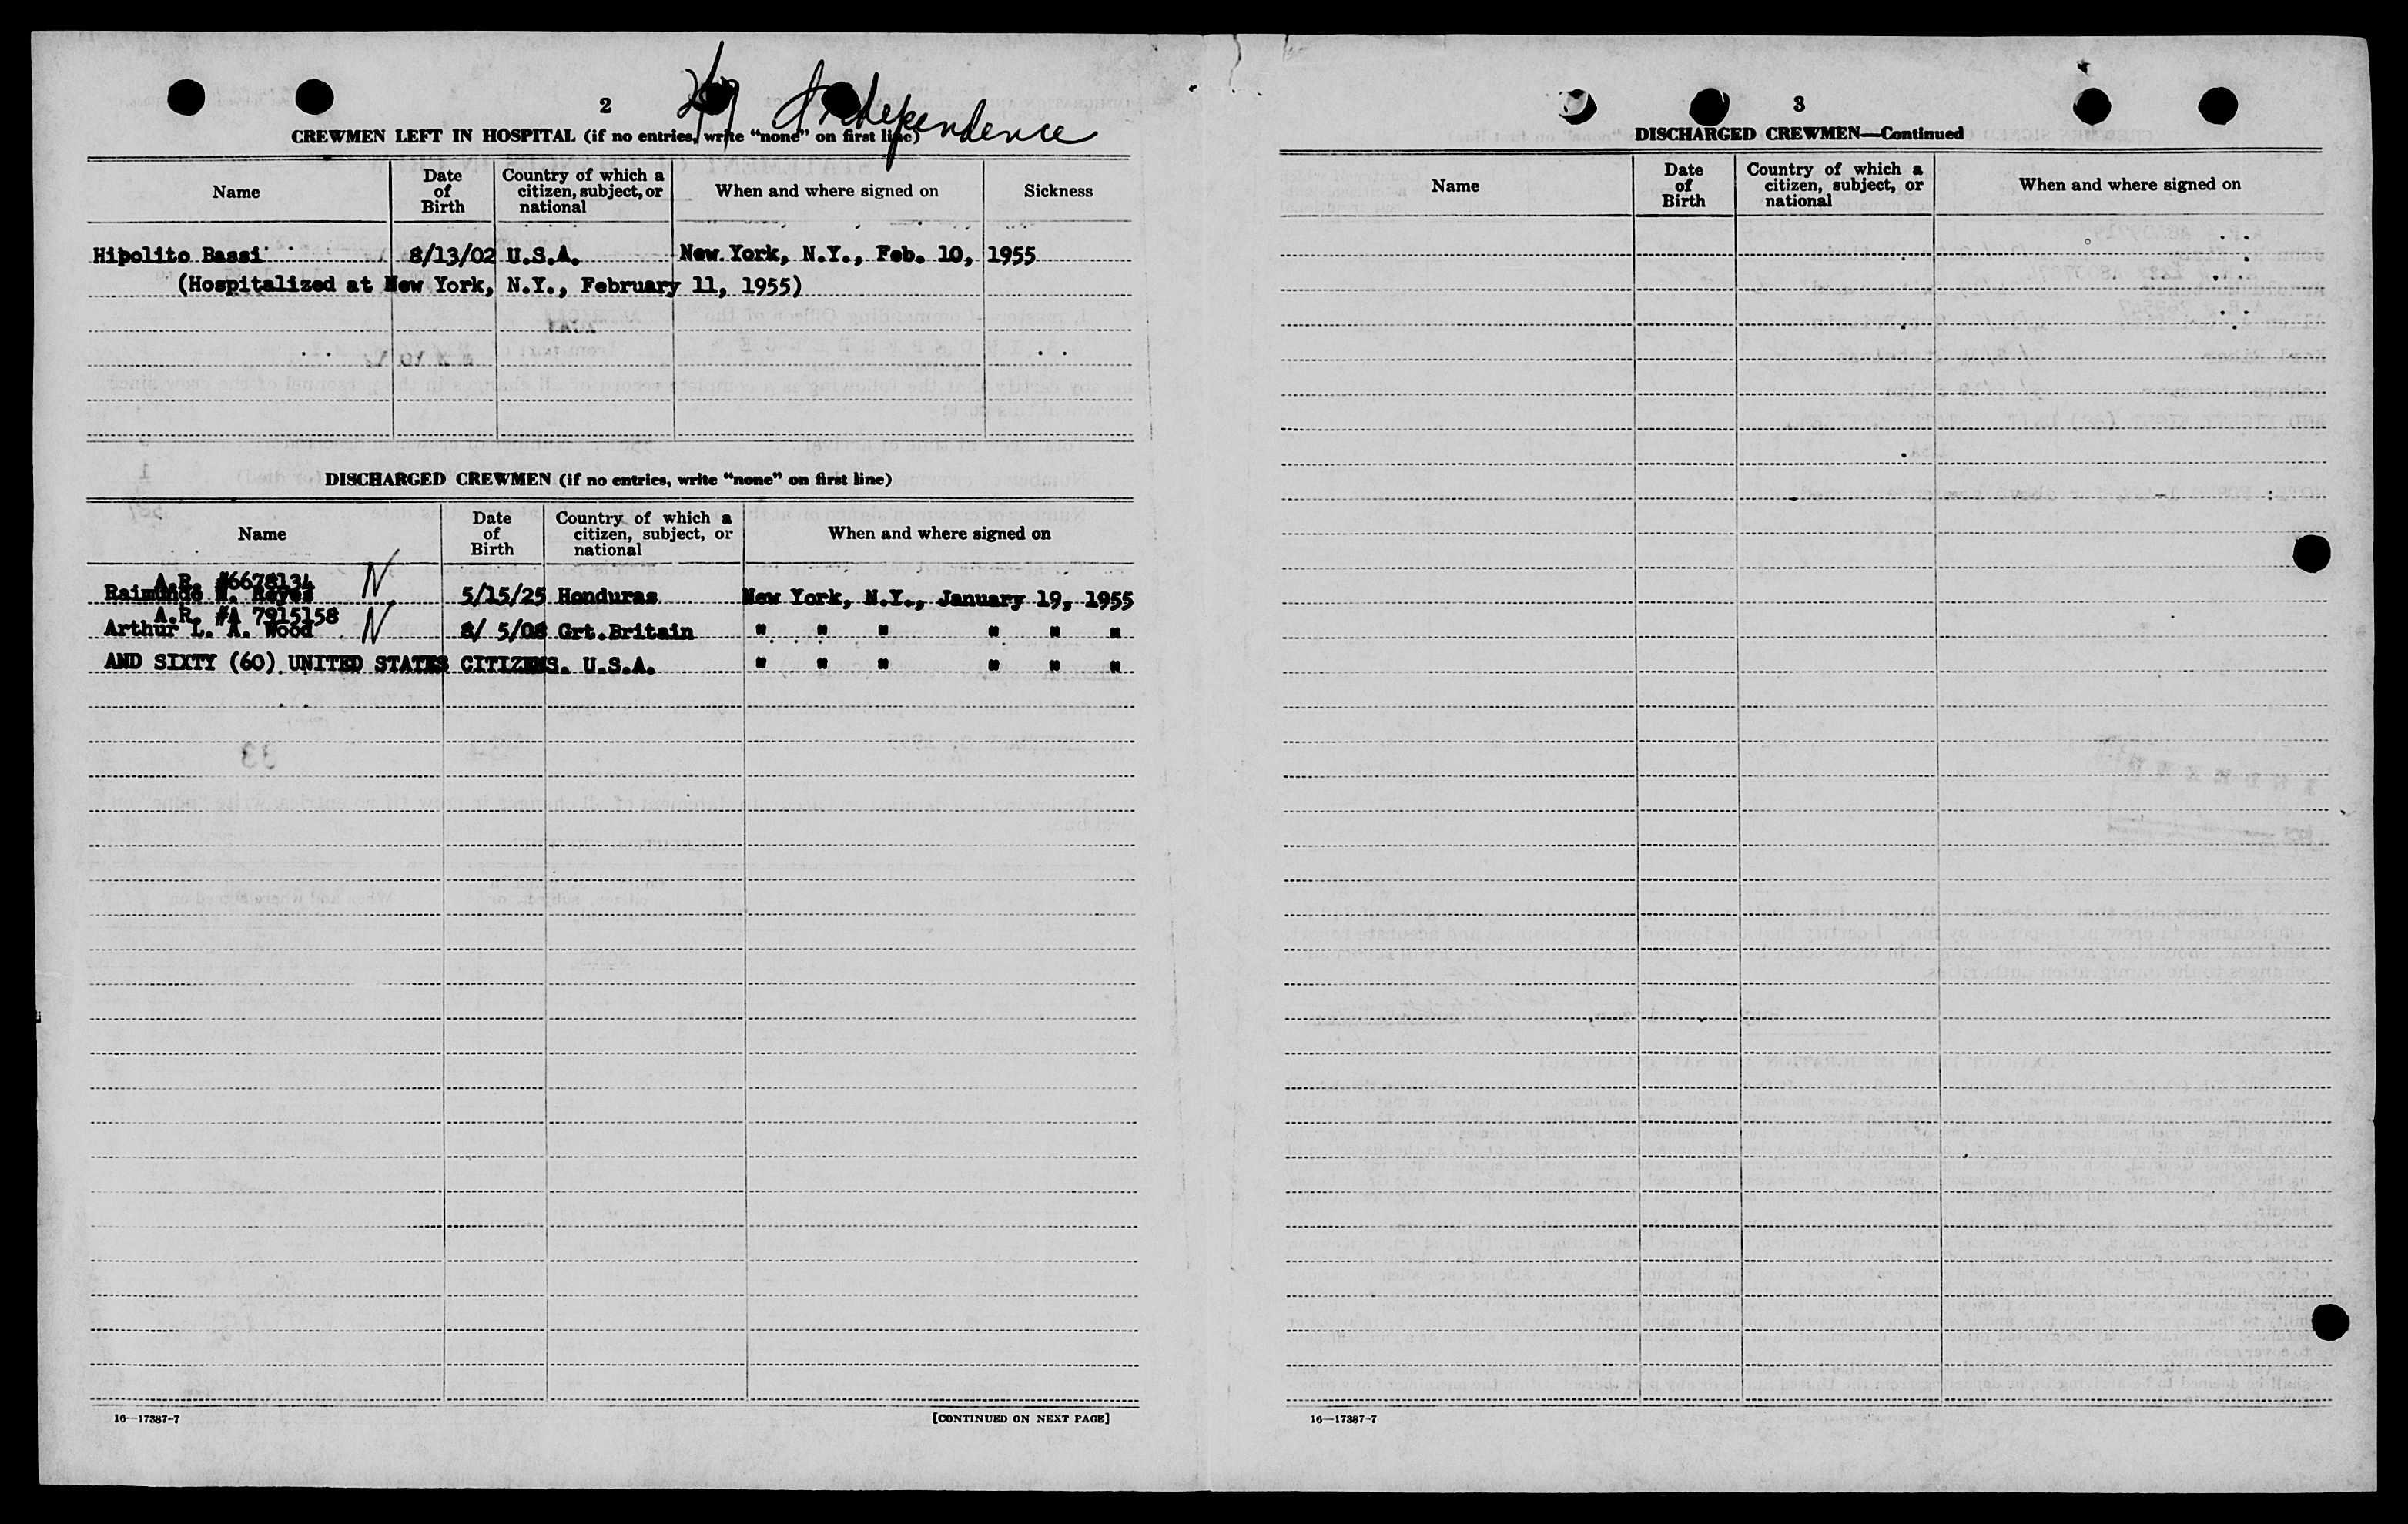 2
Independence
CREWMEN LEFT IN HOSPITAL (if no entries, write "none" on first line)
Name Date of Birth Country of which a citizen, subject, or national When and where signed on Sickness
Hipolito Bassi 8/13/02 U.S.A. New York, N.Y., Feb. 10, 1955
(Hospitalized at New York, N.Y., February 11, 1955)
DISCHARGED CREWMEN (if no entries, write "none" on first line)
Name Date of Birth Country of which a citizen, subject, or national When and where signed on
A.R. #6678134 N
Raimundo Reyes 5/15/25 Honduras New York, N.Y., January 19, 1955
A.R. #A 7915158
Arthur L. A. Wood N 8/ 5/08 Grt.Britain " " " " " "
AND SIXTY (60) UNITED STATES CITIZENS. U.S.A. " " " " " "
16—17387-7 [CONTINUED ON NEXT PAGE]
3
DISCHARGED CREWMEN—Continued
Name Date of Birth Country of which a citizen, subject, or national When and where signed on
16—17387-7